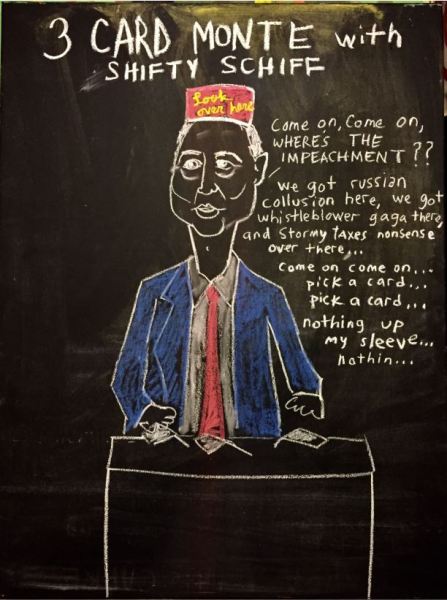 3 CARD MONTE with
SHIFTY SCHIFF
Look
over here
Come on, Come on,
WHERE'S THE
IMPEACHMENT??
we got russian
collusion here, we got
whistleblower gaga there,
and Stormy Taxes nonsense
over there...
come on come on...
pick a card...
pick a card...
nothing up
my sleeve...
nothin...